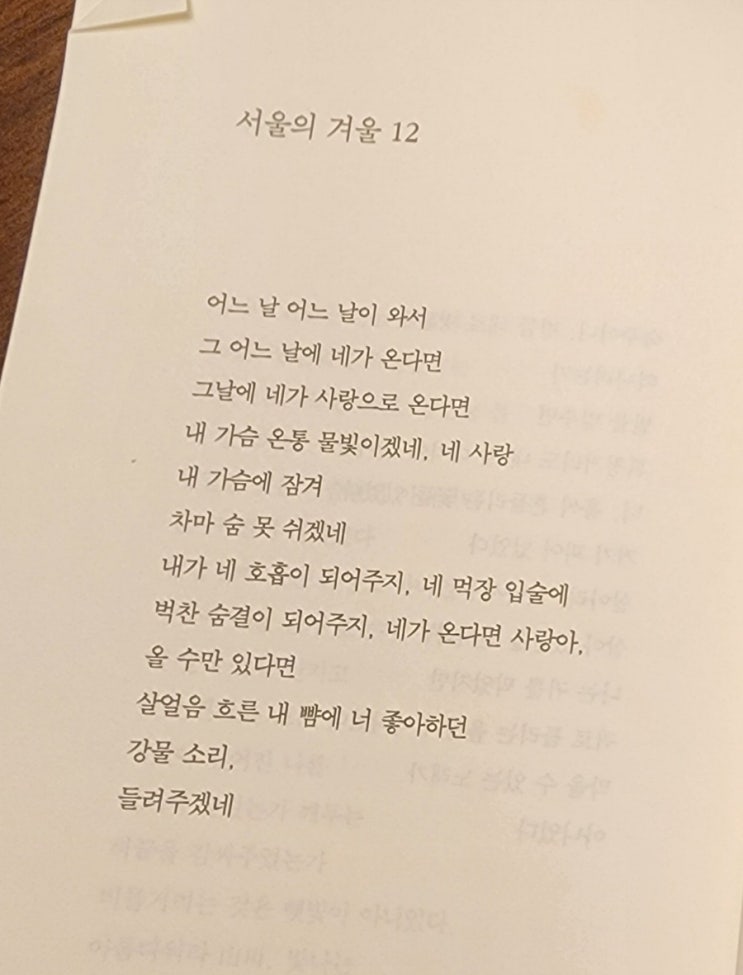 서울의 겨울 12
어느 날 어느 날이 와서
그 어느 날에 네가 온다면
그날에 네가 사랑으로 온다면
내 가슴 온통 물빛이겠네, 네 사랑
내 가슴에 잠겨
차마 숨 못 쉬겠네
내가 네 호흡이 되어주지, 네 먹장 입술에
벅찬 숨결이 되어주지, 네가 온다면 사랑아,
올 수만 있다면
살얼음 흐른 내 뺨에 너 좋아하던
강물 소리,
들려주겠네